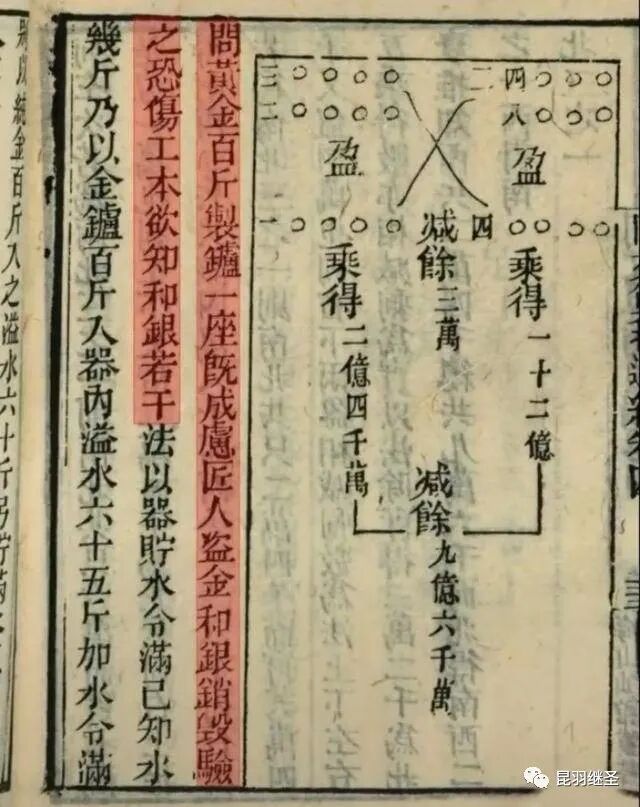 三〇〇〇〇 二四〇〇〇
二〇〇〇 八〇〇〇
盈 盈
一〇〇〇〇 四〇〇〇〇
乘得一十二億
減餘三萬
減餘九億六千萬
乘得二億四千萬
問黃金百斤製鑪一座既成慮匠人盜金和銀銷毀驗
之恐傷工本欲知和銀若干法以器貯水令滿已知水
幾斤乃以金鑪百斤入器內溢水六十五斤加水令滿
純金百斤入之溢水六十斤另貯滿
昆羽继圣